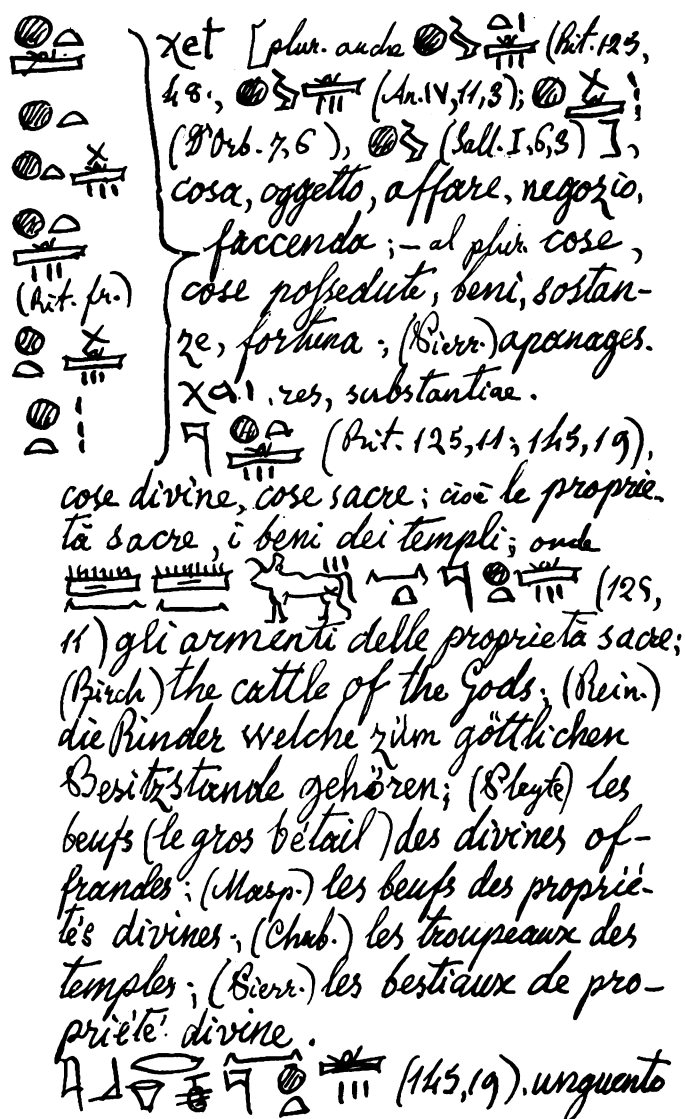 χet [plur. anche 𓐍𓏲𓏏𓏤𓏛 (Rit. 125,
48., 𓐍𓏲𓏛 (An. IV, 11, 3); 𓐍𓏴𓏛𓏥
(D'Orb. 7, 6), 𓐍𓏲 (Sall. I, 6, 3)],
cosa, oggetto, affare, negozio,
faccenda ; — al plur. cose,
(Rit. fr.)
cose possedute, beni, sostan-
ze, fortuna ; (Pierr.) apanages.
res, substantiae.
𓊹𓐍𓏏𓏛𓏥 (Rit. 125, 11; 145, 19),
cose divine, cose sacre; cioè le proprie-
tà sacre, i beni dei templi; onde
𓏠𓈖𓏠𓈖𓃒𓏥𓈖𓏏𓊹𓐍𓏏𓏛𓏥 (125,
11) gli armenti delle proprietà sacre;
(Birch) the cattle of the Gods; (Rein.)
die Rinder welche zŭm göttlichen
Besitzstande gehören; (Pleyte) les
beufs (le gros bétail) des divines of-
frandes; (Masp.) les beufs des proprié-
tés divines; (Chab.) les troupeaux des
temples; (Pierr.) les bestiaux de pro-
priété divine.
(145, 19). unguento